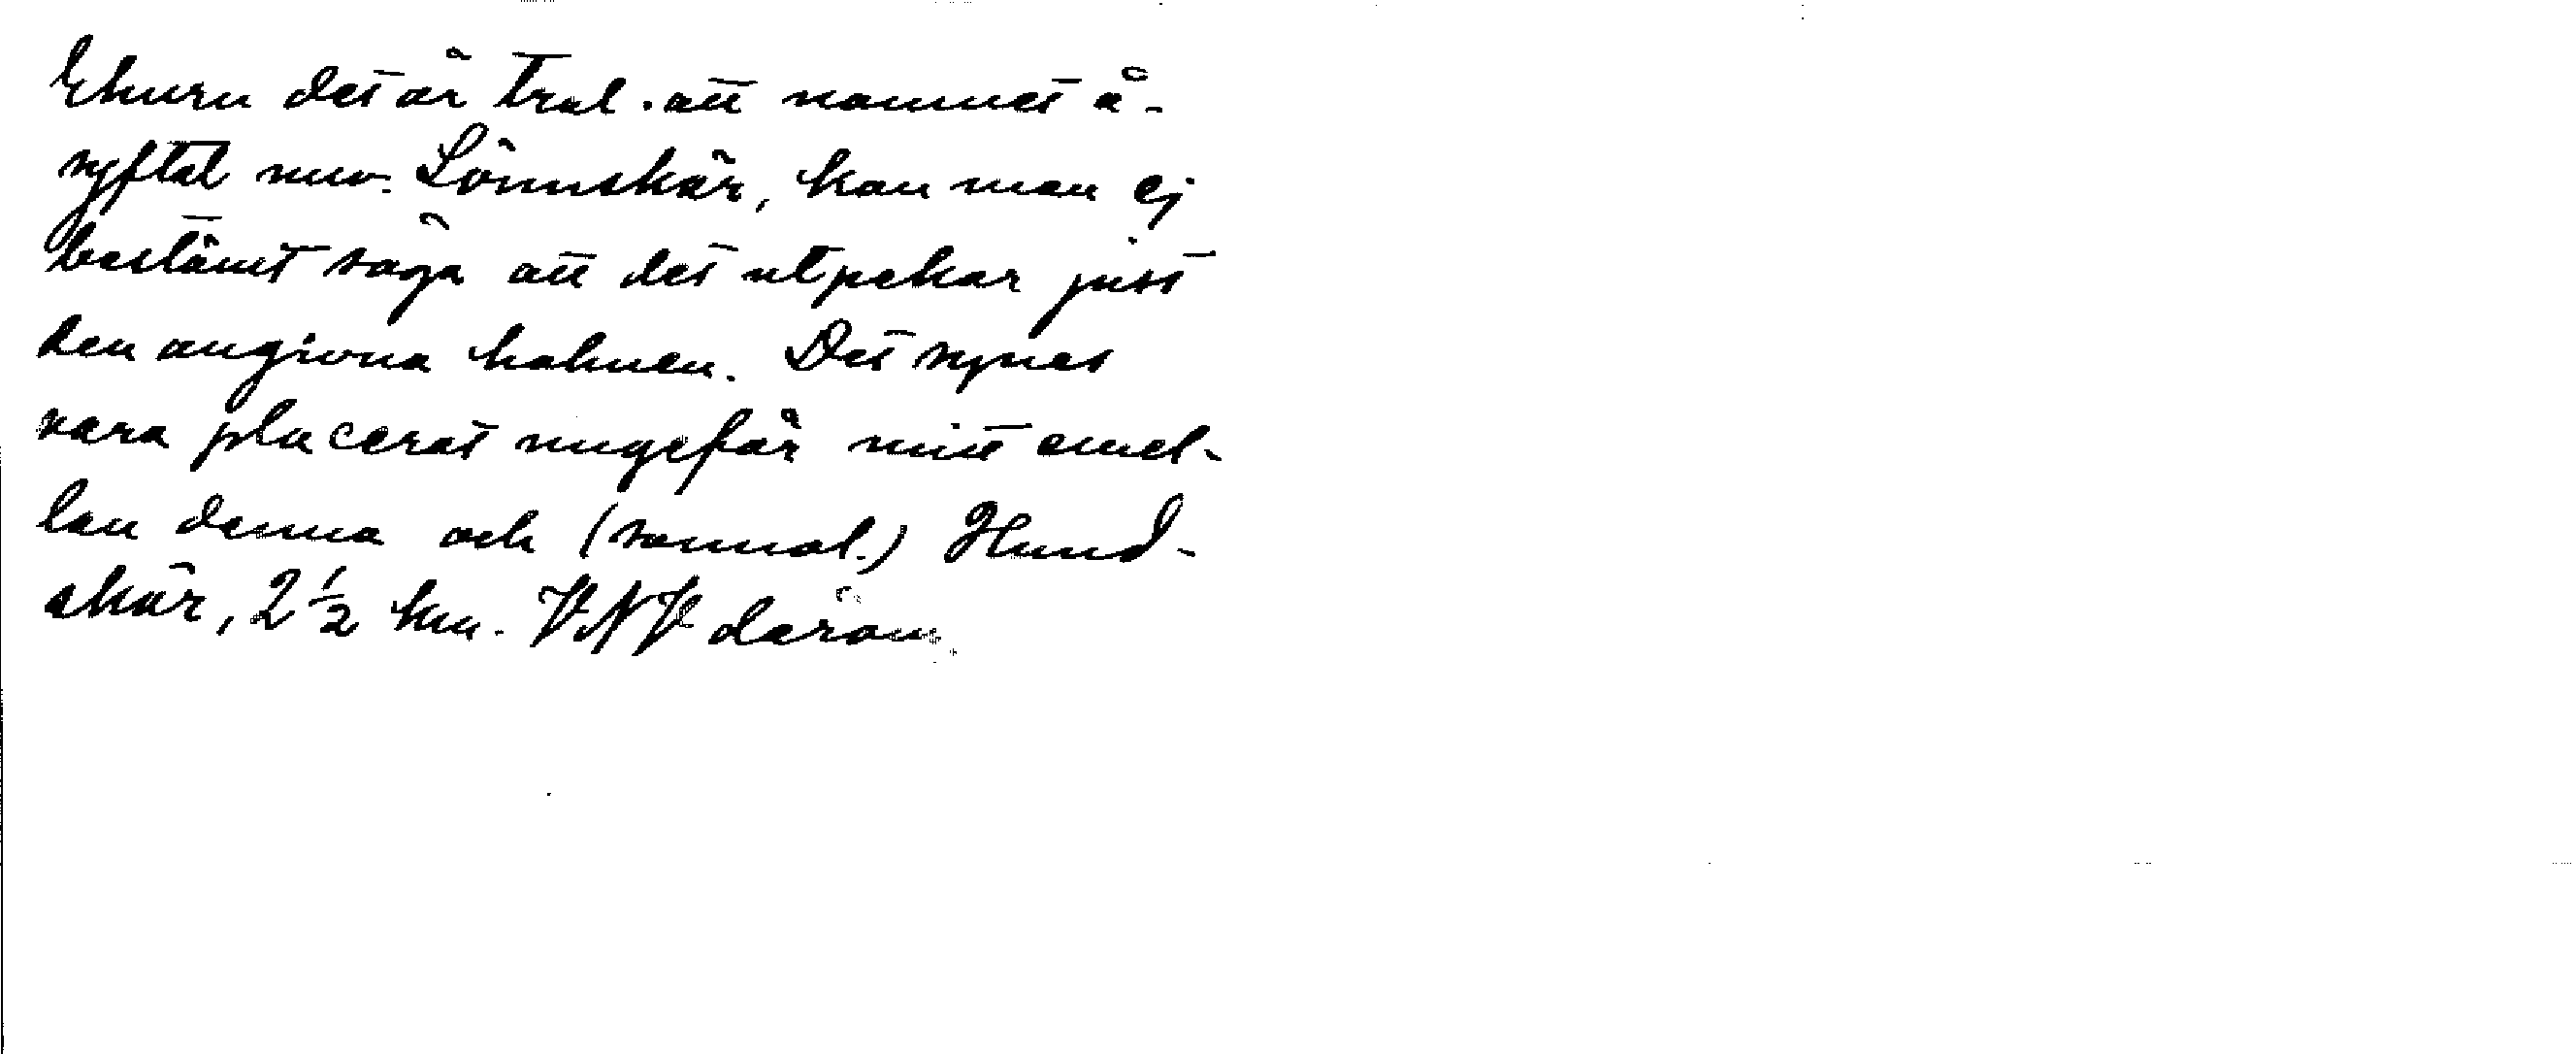 Ehuru det är trol. att namnet å-
syftat nuv. Lönnskär, kan man ej
bestämt säga att det utpekar just
den angivna holmen. Det synes
vara placerat ungefär mitt emel-
lan denna och (sannol.) Hund-
skär, 2 1/2 km. VNV därom.